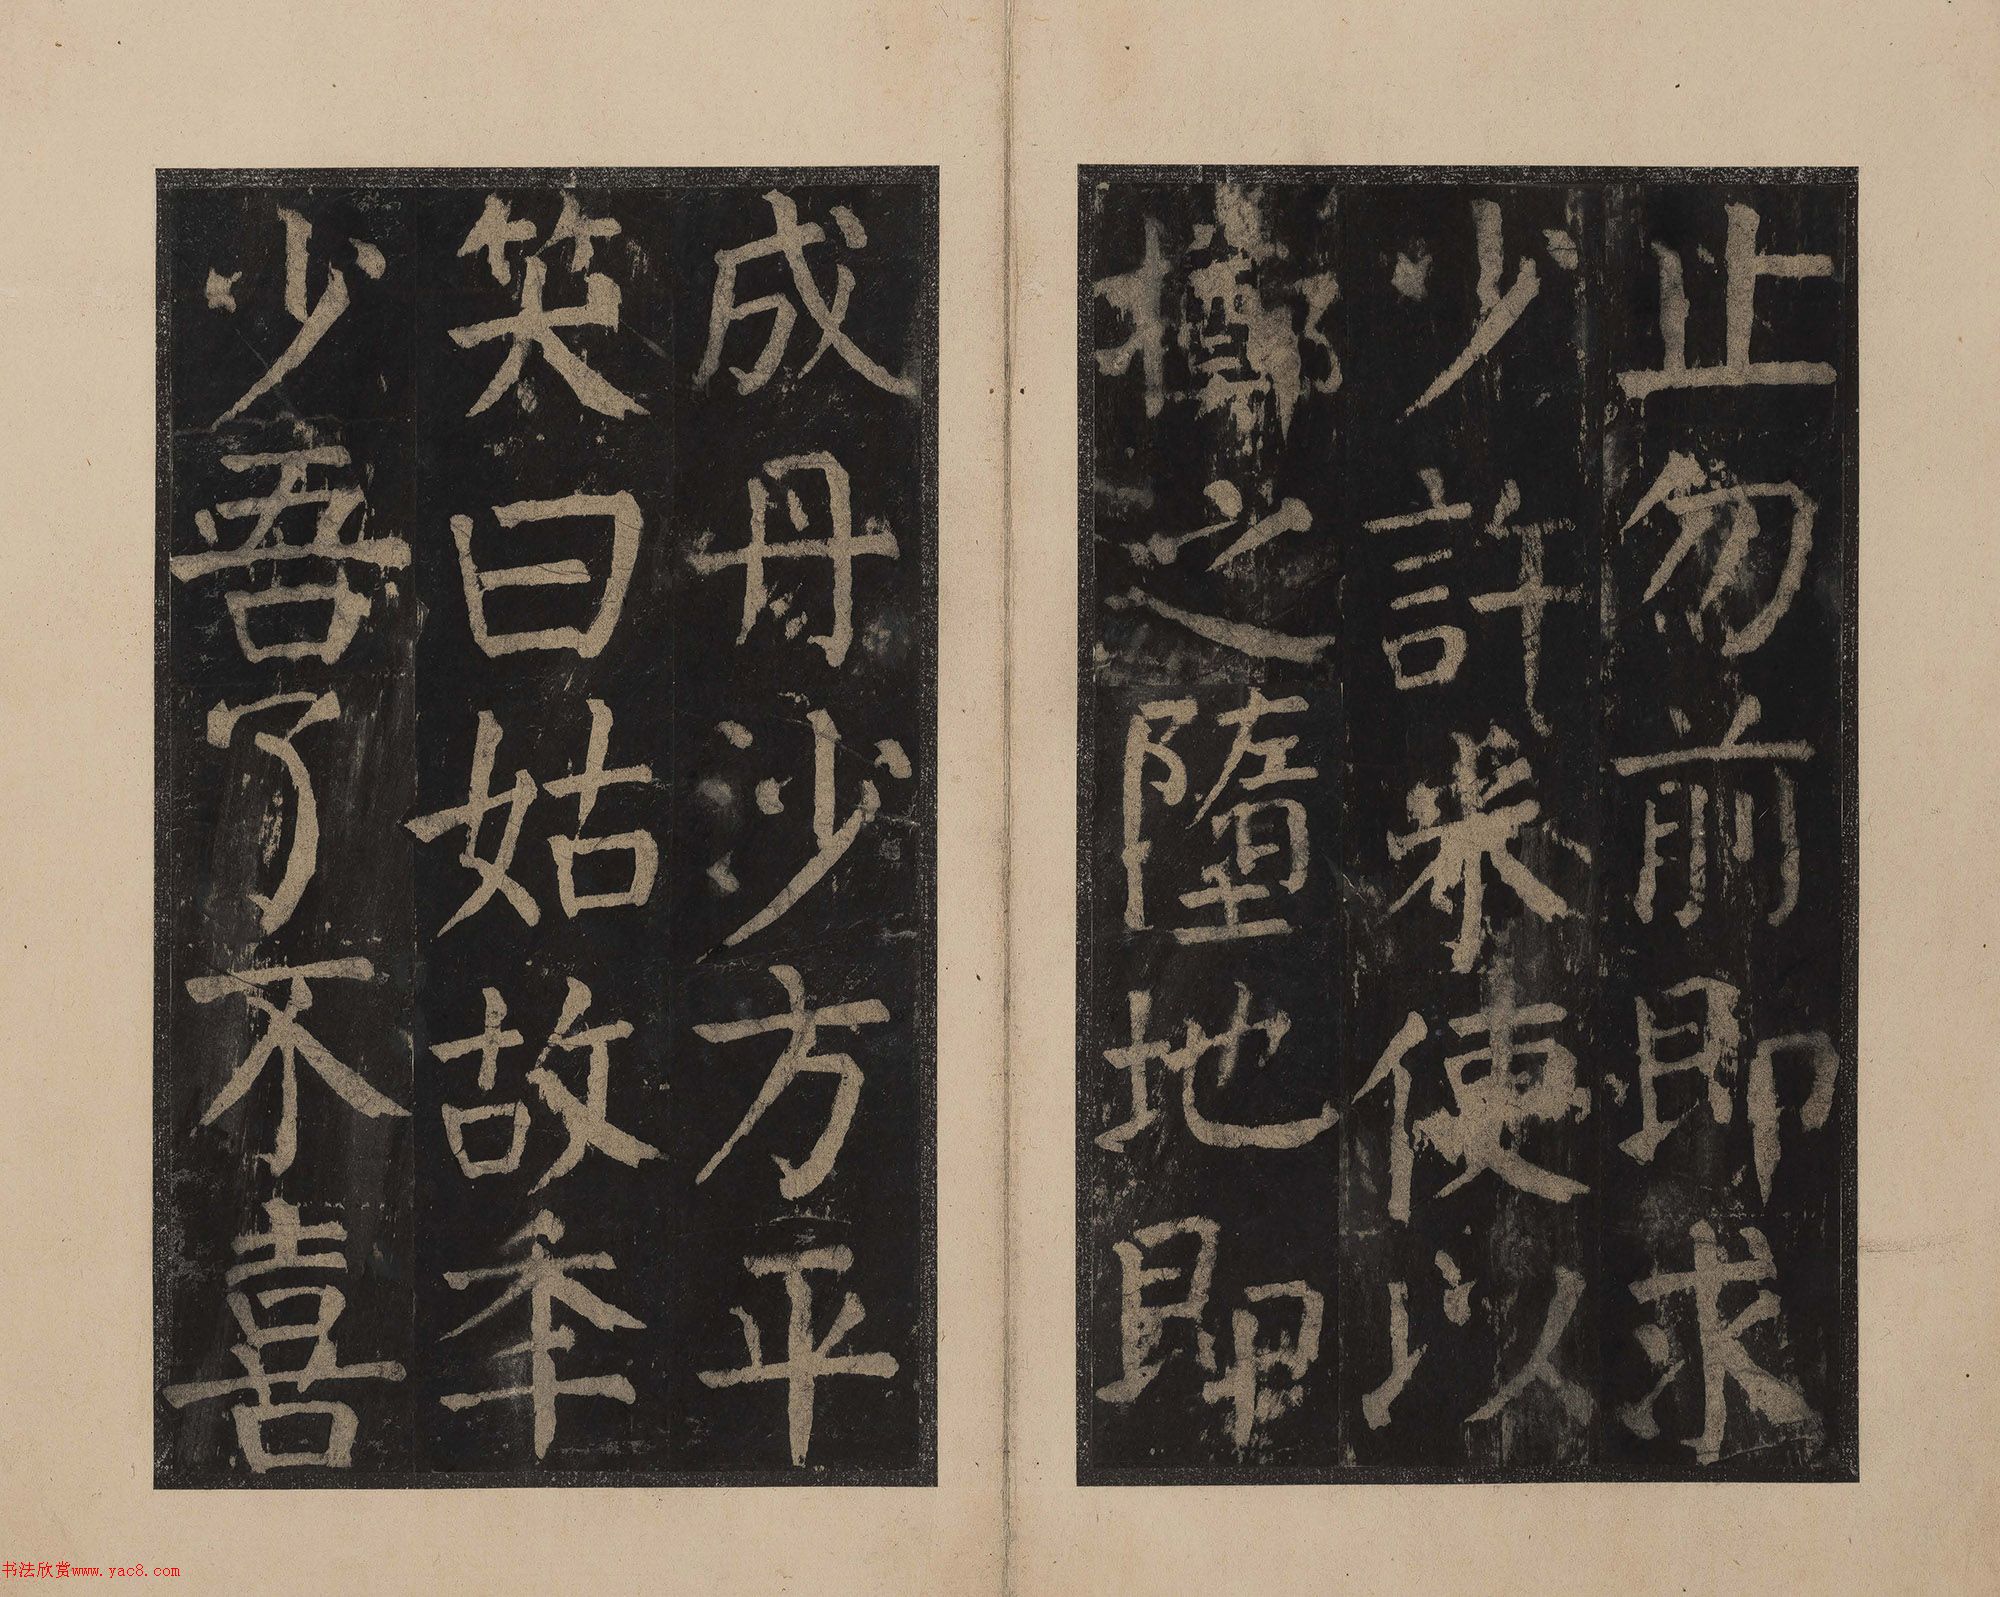 止勿前即求
少許米使以
擲之墮地即
成丹沙方平
笑曰姑故年
少吾了不喜
书法欣赏www.yac8.com